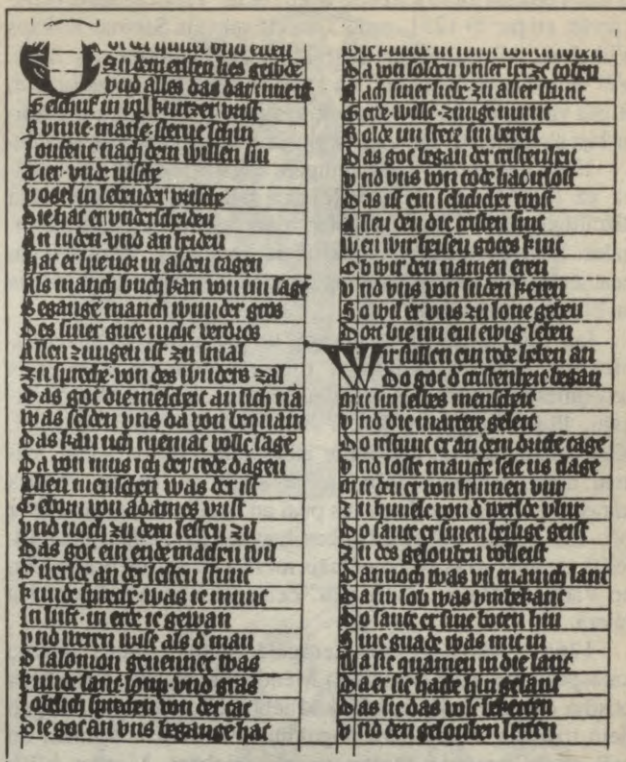 Got der guten vnd eilen
In dem ersten lies geride
vnd alles das dar inne ist
Geschuf in vil kurtzer vrist
Svnne mane sterne schin
Loufent nach dem willen sin
Tier vnde vische
vogel in lebender vrische
Die hat er vnderscheiden
An iuden vnd an heiden
hat er hie vor in alden tagen
Als manch buch kan von im sagē
Begangē manch wunder gros
Des siner gute nicht verdros
Allen zungen ist zu smal
zu sprechē von des wunders zal
Das got die mēscheit an sich nā
was selden vns da von bequam
Das kan uch niemāt volle sagē
Da von mus ich der rede dagen
Allen menschen was der ist
Geborn von adames vrist
vnd noch zu dem lesten zil
Das got ein ende machen wil
D werlde an der lesten stunt
kunde sprechē was ie munt
In luft in erde ie gewan
vnd weren wise als d man
D salomon genennet was
kunde lant loup vnd gras
Loblich sprechen von der tat
Die got an vns begangē hat
Die kunde in nicht
Da von solden vnser hertzē toben
Nach siner liebe zu aller stunt
herde wille zunge munt
Solde im stete sin bereit
Das got began der cristenheit
vnd vns von tode hat irlost
Das ist ein selicher trost
Allen den die cristen sint
wen wir heisen gotes kint
Ob wir den namen eren
vnd vns von sunden keren
So wil er vns zu lone geben
Dort bie im ein ewig leben
Wir sullen ein rede heben an
Do got d cristenheit began
Mit sin selbes menscheit
vnd die martere geleit
Do irstunt er an dem dritte tage
vnd loste manche sele us clage
Mit den er von hinnen vur
zu himele von d werlde vlur
Do sante er sinen heilige geist
zu des gelouben volleist
Dannoch was vil manich lant
Da sin lob was vnbekant
Do sante er sine boten hin
Sine gnade was mit in
Da sie quamen in die lant
Da er sie hatte hin gesant
Das sie das volc lerten
vnd den gelouben lerten